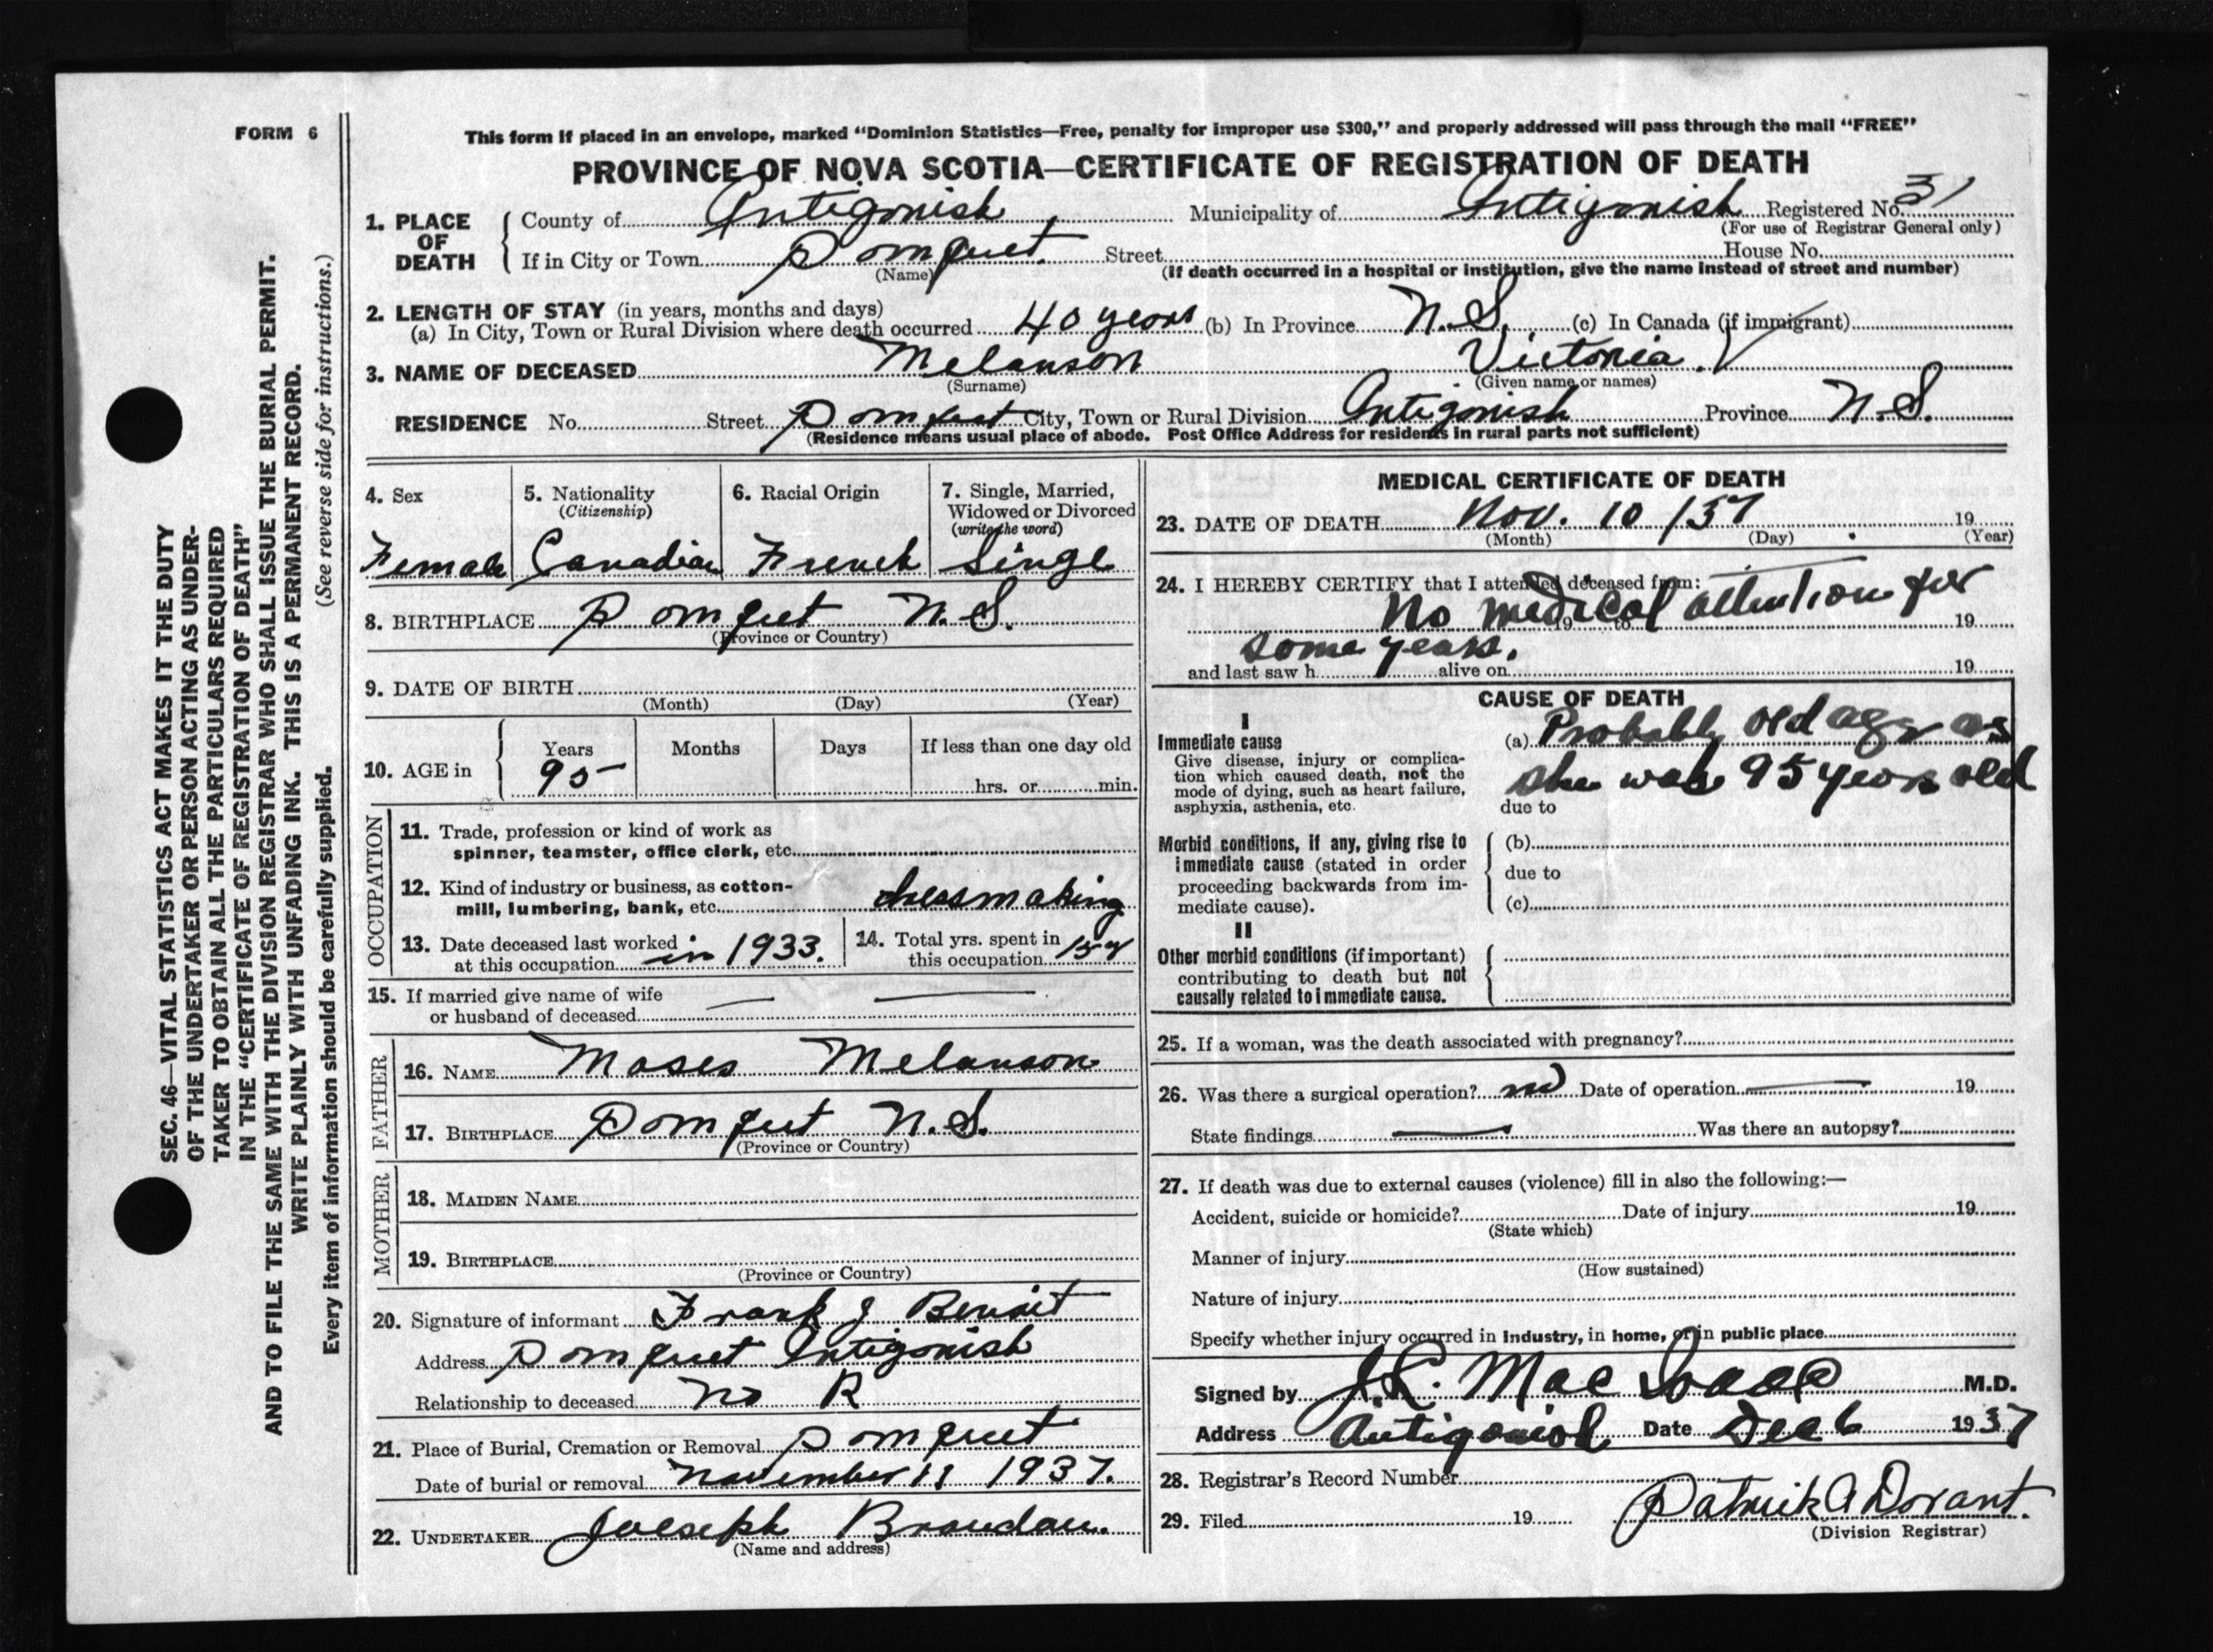 FORM 6
This form if placed in an envelope, marked "Dominion Statistics—Free, penalty for improper use $300," and properly addressed will pass through the mail "FREE"
PROVINCE OF NOVA SCOTIA—CERTIFICATE OF REGISTRATION OF DEATH
1. PLACE OF DEATH
County of Antigonish Municipality of Antigonish Registered No. 31
(For use of Registrar General only)
If in City or Town Pomquet Street House No.
(Name) (If death occurred in a hospital or institution, give the name instead of street and number)
2. LENGTH OF STAY (in years, months and days)
(a) In City, Town or Rural Division where death occurred 40 years (b) In Province N.S. (c) In Canada (if immigrant)
3. NAME OF DECEASED Melanson Victoria
(Surname) (Given name or names)
RESIDENCE No. Street Pomquet City, Town or Rural Division Antigonish Province N.S.
(Residence means usual place of abode. Post Office Address for residents in rural parts not sufficient)
SEC. 46—VITAL STATISTICS ACT MAKES IT THE DUTY
OF THE UNDERTAKER OR PERSON ACTING AS UNDER-
TAKER TO OBTAIN ALL THE PARTICULARS REQUIRED
IN THE "CERTIFICATE OF REGISTRATION OF DEATH"
AND TO FILE THE SAME WITH THE DIVISION REGISTRAR WHO SHALL ISSUE THE BURIAL PERMIT.
WRITE PLAINLY WITH UNFADING INK. THIS IS A PERMANENT RECORD.
Every item of information should be carefully supplied. (See reverse side for instructions.)
4. Sex
Female
5. Nationality
(Citizenship)
Canadian
6. Racial Origin
French
7. Single, Married,
Widowed or Divorced
(write the word)
Singl
8. BIRTHPLACE Pomquet N.S.
(Province or Country)
9. DATE OF BIRTH
(Month) (Day) (Year)
10. AGE in
Years Months Days If less than one day old
95 hrs. or min.
OCCUPATION
11. Trade, profession or kind of work as
spinner, teamster, office clerk, etc.
12. Kind of industry or business, as cotton-
mill, lumbering, bank, etc. dressmaking
13. Date deceased last worked
at this occupation in 1933.
14. Total yrs. spent in
this occupation
15. If married give name of wife
or husband of deceased
FATHER
16. NAME Moses Melanson
17. BIRTHPLACE Pomquet N.S.
(Province or Country)
MOTHER
18. MAIDEN NAME
19. BIRTHPLACE
(Province or Country)
20. Signature of informant Frank J Benoit
Address Pomquet Antigonish
Relationship to deceased no R
21. Place of Burial, Cremation or Removal Pomquet
Date of burial or removal November 11 1937.
22. UNDERTAKER Joeseph Broudau.
(Name and address)
MEDICAL CERTIFICATE OF DEATH
23. DATE OF DEATH Nov. 10 /37 19
(Month) (Day) (Year)
24. I HEREBY CERTIFY that I attended deceased from:
No medical attention for
19 to 19
some years.
and last saw h alive on 19
CAUSE OF DEATH
I
Immediate cause
Give disease, injury or complica-
tion which caused death, not the
mode of dying, such as heart failure,
asphyxia, asthenia, etc.
(a) Probably old age as
she was 95 years old
due to
Morbid conditions, if any, giving rise to
immediate cause (stated in order
proceeding backwards from im-
mediate cause).
(b)
due to
(c)
II
Other morbid conditions (if important)
contributing to death but not
causally related to immediate cause.
25. If a woman, was the death associated with pregnancy?
26. Was there a surgical operation? no Date of operation 19
State findings Was there an autopsy?
27. If death was due to external causes (violence) fill in also the following:—
Accident, suicide or homicide? Date of injury 19
(State which)
Manner of injury
(How sustained)
Nature of injury
Specify whether injury occurred in industry, in home, or in public place
Signed by J.L. MacIsaac M.D.
Address Antigonish Date Dec 6 1937
28. Registrar's Record Number
29. Filed 19 Patrick A Dorant.
(Division Registrar)